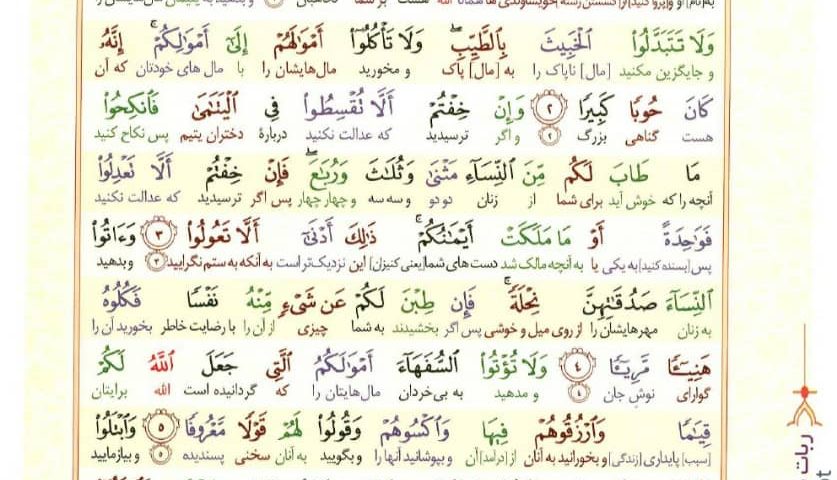 وَلَا تَتَبَدَّلُوا۟ الْخَبِيثَ بِالطَّيِّبِ ۖ وَلَا تَأْكُلُوٓا۟ أَمْوَالَهُمْ إِلَىٰٓ أَمْوَالِكُمْ ۚ إِنَّهُۥ
و جایگزین مکنید [مال] ناپاک را به [مال] پاک و مخورید مال‌هایشان را با مال های خودتان که آن
كَانَ حُوبًا كَبِيرًا ٢ وَإِنْ خِفْتُمْ أَلَّا تُقْسِطُوا۟ فِي الْيَتَـٰمَىٰ فَانكِحُوا۟
هست گناهی بزرگ ٢ و اگر ترسیدید که عدالت نکنید دربارهٔ دختران یتیم پس نکاح کنید
مَا طَابَ لَكُم مِّنَ النِّسَآءِ مَثْنَىٰ وَثُلَـٰثَ وَرُبَـٰعَ ۖ فَإِنْ خِفْتُمْ أَلَّا تَعْدِلُوا۟
آنچه را که خوش آید برای شما از زنان دو دو و سه سه و چهار چهار پس اگر ترسیدید که عدالت نکنید
فَوَاحِدَةً أَوْ مَا مَلَكَتْ أَيْمَـٰنُكُمْ ۚ ذَٰلِكَ أَدْنَىٰٓ أَلَّا تَعُولُوا۟ ٣ وَءَاتُوا۟
پس [بسنده کنید] به یکی یا به آنچه مالک شد دست های شما [یعنی کنیزان] این نزدیک‌تر است به آنکه به ستم نگرایید ٣ و بدهید
النِّسَآءَ صَدُقَـٰتِهِنَّ نِحْلَةً ۚ فَإِن طِبْنَ لَكُمْ عَن شَىْءٍ مِّنْهُ نَفْسًا فَكُلُوهُ
به زنان مهرهایشان را از روی میل و خوشی پس اگر بخشیدند به شما چیزی از آن را با رضایت خاطر بخورید آن را
هَنِيٓـًٔا مَّرِيٓـًٔا ٤ وَلَا تُؤْتُوا۟ السُّفَهَآءَ أَمْوَالَكُمُ الَّتِي جَعَلَ اللَّهُ لَكُمْ
گوارای نوش جان ٤ و مدهید به بی‌خردان مال‌هایتان را که گردانیده است الله برایتان
قِيَـٰمًا وَارْزُقُوهُمْ فِيهَا وَاكْسُوهُمْ وَقُولُوا۟ لَهُمْ قَوْلًا مَّعْرُوفًا ٥ وَابْتَلُوا۟
[سبب] پایداری [زندگی] و بخورانید به آنان از [درآمد] آن و بپوشانید آنها را و بگویید به آنان سخنی پسندیده ٥ و بیازمایید